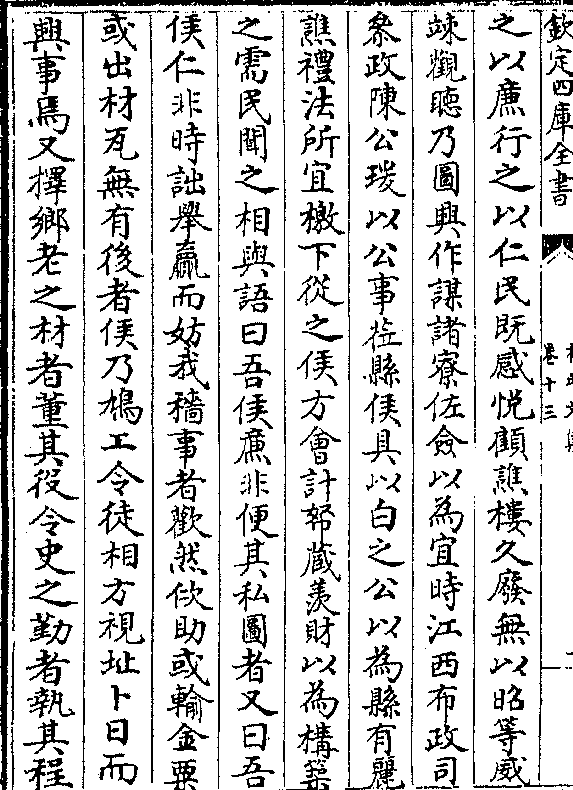 欽定四庫全書
卷十三
之以㢘行之以仁民既感悦顧譙樓久廢無以昭等威
竦觀聴乃圖興作謀諸寮佐僉以為宜時江西布政司
叅政陳公瑗以公事莅縣侯具以白之公以為縣有麗
譙禮法所宜檄下從之侯方會計帑蔵羡財以為構築
之需民聞之相與語曰吾侯㢘非便其私圖者又曰吾
侯仁非時詘舉贏而妨我穡事者歡然佽助或輸金粟
或出材瓦無有後者侯乃鳩工令徒相方視址卜日而
興事焉又擇鄉老之材者董其役令史之勤者執其程